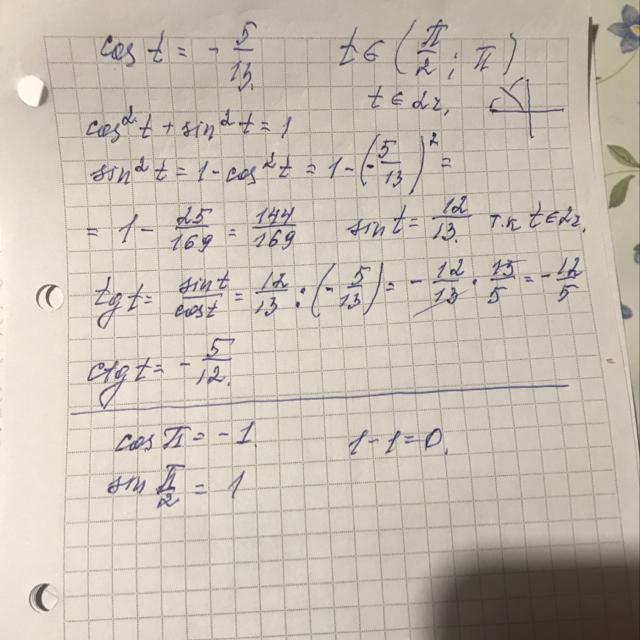 cos t = - 5/13. t ∈ (π/2; π)
t ∈ 2ч.
cos²t + sin²t = 1
sin²t = 1 - cos²t = 1 - (-5/13)² =
= 1 - 25/169 = 144/169 sin t = 12/13. т.к t ∈ 2ч.
tg t = sin t/cos t = 12/13 : (-5/13) = - 12/13 · 13/5 = - 12/5
ctg t = - 5/12.
cos π = - 1. 1 - 1 = 0.
sin π/2 = 1